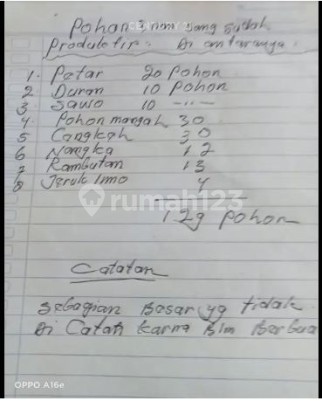 Pohon yang sudah
Produktif. Di antaranya:
1. Petar 20 Pohon
2 Duran 10 Pohon
3. Sawo 10 -"-
4 Pohon mangah 30
5 Cangkeh 30
6 Nangka 12
7 Rambutan 13
8 Jeruk limo 4
129 Pohon
rumah123
Catatan
Sebagian Besar yg tidak
Di Catat karna Blm Berbua
OPPO A16e